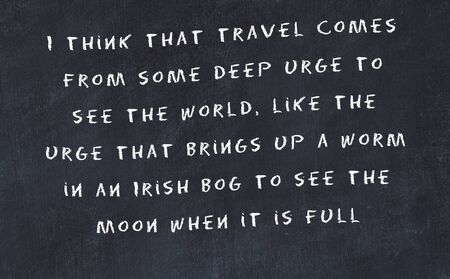 I THINK THAT TRAVEL COMES
FROM SOME DEEP URGE TO
SEE THE WORLD, LIKE THE
URGE THAT BRINGS UP A WORM
IN AN IRISH BOG TO SEE THE
MOON WHEN IT IS FULL